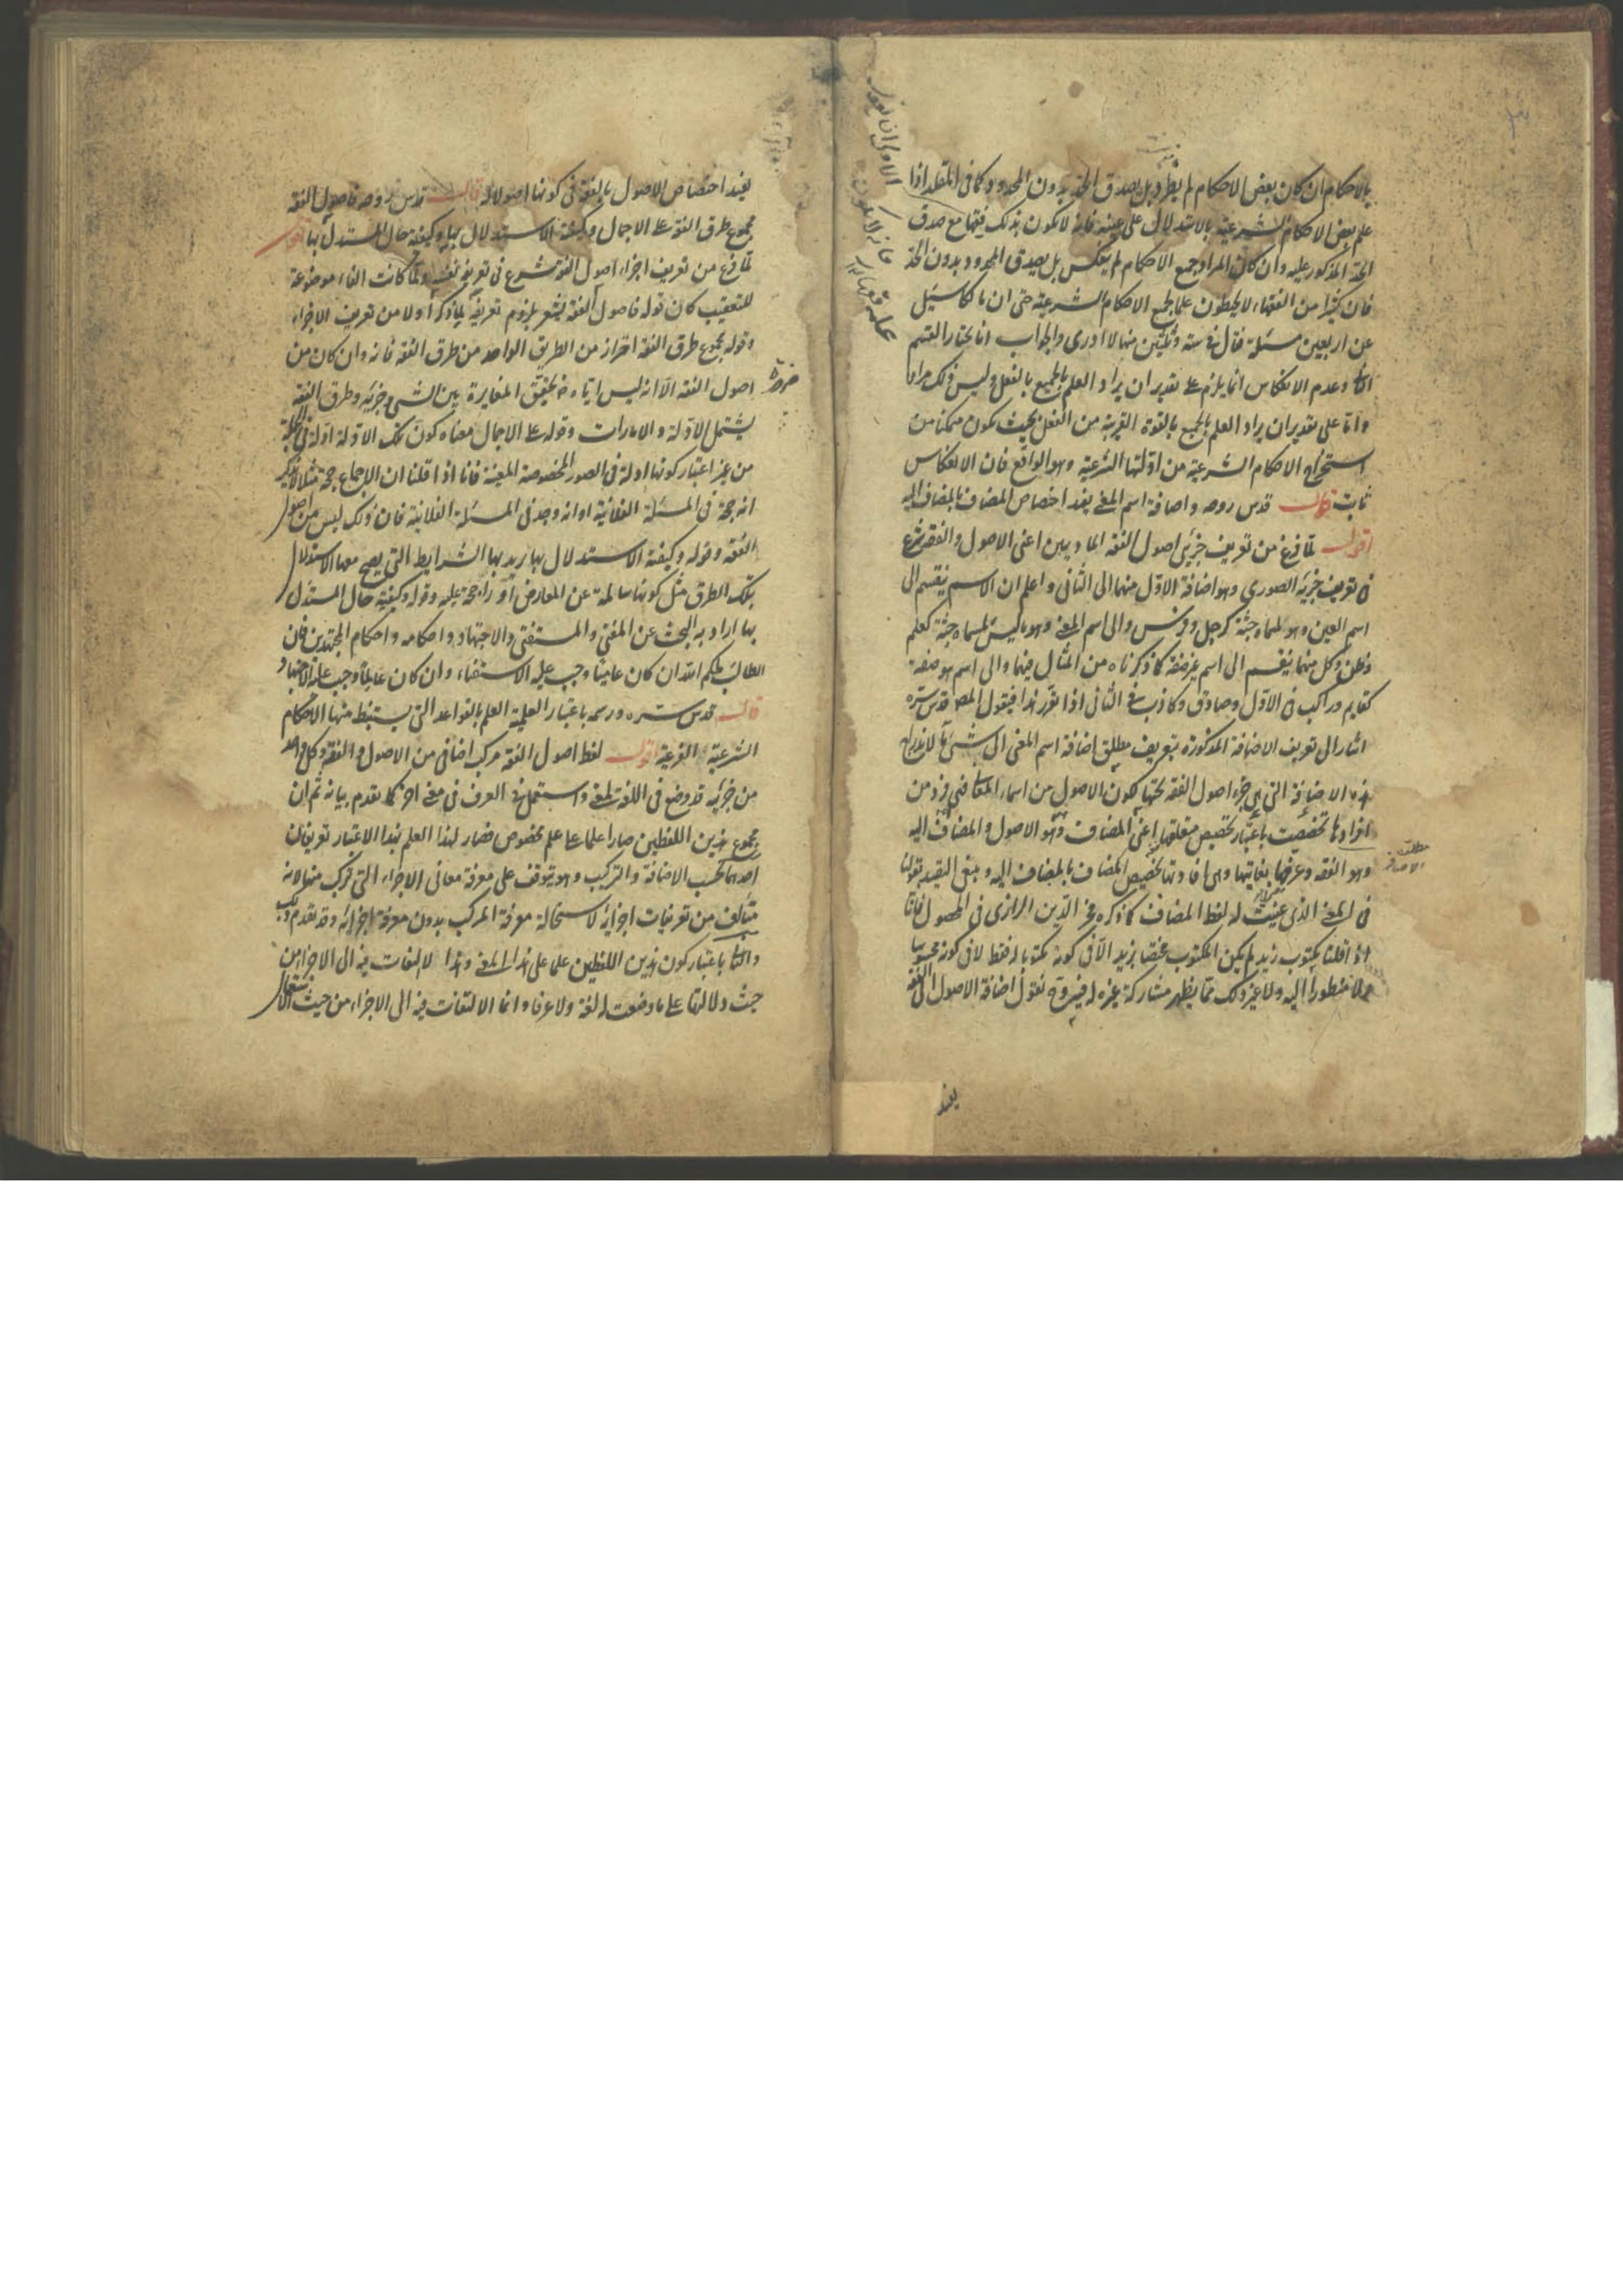 بالاحكام ان كان بعض الاحكام لم يطرد بل يصدق الحد بدون المحدود كما فى المقلد اذا
علم بعض الاحكام الشرعية بالاستدلال على عينه فانه لا يكون بذلك فقيها مع صدق
الحد المذكور عليه وان كان المراد جميع الاحكام لم ينعكس بل يصدق المحدود بدون الحد
فان كثيرا من الفقهاء لا يحيطون علما بجميع الاحكام الشرعية حتى ان مالكا سئل
عن اربعين مسئلة فقال فى ستة وثلثين منها لا ادرى والجواب انا نختار القسم
وعدم الانعكاس انما يلزم على تقدير ان يراد العلم بالجميع بالفعل وليس ذلك مرادا
واما على تقدير ان يراد العلم بالجميع بالقوة القريبة من الفعل بحيث يكون متمكنا من
استخراج الاحكام الشرعية من ادلتها الشرعية وهو الواقع فان الانعكاس
ثابت قال قدس روحه واضافة اسم المعنى يفيد اختصاص المضاف بالمضاف اليه
اقول لما فرغ من تعريف جزئى اصول الفقه الماديين اعنى الاصول والفقه شرع
فى تعريف جزئه الصورى وهو اضافة الاول منهما الى الثانى واعلم ان الاسم ينقسم الى
اسم العين وهو لمسماه جثة كرجل وفرس والى اسم المعنى وهو ما ليس لمسماه جثة كعلم
وظن وكل منهما ينقسم الى اسم غير صفة كما ذكرناه من المثال فيهما والى اسم هو صفة
كقايم وراكب فى الاول وصادق وكاذب فى الثانى اذا تقرر هذا فيقول المص قدس سره
اشار الى تعريف الاضافة المذكورة بتعريف مطلق اضافة اسم المعنى الى شئ ما لاندراج
هذه الاضافة التى هى جزء اصول الفقه تحتها لكون الاصول من اسماء المعانى فهى فرد من
افرادها تخصصت باعتبار تخصيص متعلقها اعنى المضاف وهو الاصول والمضاف اليه
وهو الفقه وعرفها بغايتها وهى افادتها تخصيص المضاف بالمضاف اليه وينبغى التقييد بقولنا
فى المعنى الذى عينت له لفظ المضاف كما ذكره فخر الدين الرازى فى المحصول فانا
اذا قلنا مكتوب زيد لم يكن المكتوب مختصا بزيد الا فى كونه مكتوبا له فقط لا فى كونه محسوسا
ولا منظورا اليه ولا غير ذلك مما يظهر مشاركة غيره له فيه وح نقول اضافة الاصول الى الفقه
يفيد
يفيد اختصاص الاصول بالفقه فى كونها اصولا له قال قدس روحه فاصول الفقه
مجموع طرق الفقه على الاجمال وكيفية الاستدلال بها وكيفية حال المستدل بها اقول
لما فرغ من تعريف اجزاء اصول الفقه شرع فى تعريف نفسه ولما كانت الفاء موضوعة
للتعقيب كان قوله فاصول الفقه يشعر بلزوم تعريفه لما ذكر اولا من تعريف الاجزاء
وقوله مجموع طرق الفقه احتراز من الطريق الواحد من طرق الفقه فانه وان كان من
اصول الفقه الا انه ليس اياه لتحقق المغايرة بين الشئ وجزئه وطرق الفقه
ضرورة
يشتمل الادلة والامارات وقوله على الاجمال معناه كون تلك الادلة ادلة فى الجملة
من غير اعتبار كونها ادلة فى الصور المخصوصة المعينة فانا اذا قلنا ان الاجماع حجة مثلا لا نذكر
انه حجة فى المسئلة الفلانية او انه وجد فى المسئلة الفلانية فان ذلك ليس من اصول
الفقه وقوله وكيفية الاستدلال بها يريد بها الشرايط التى يصح معها الاستدلال
بتلك الطرق مثل كونها سالمة عن المعارض او راجحة عليه وقوله وكيفية حال المستدل
بها اراد به البحث عن المفتى والمستفتى والاجتهاد واحكامه واحكام المجتهدين فان
الطالب لحكم الله ان كان عاميا وجب عليه الاستفتاء وان كان عالما وجب عليه الاجتهاد
قال قدس سره ورسمه باعتبار العلمية العلم بالقواعد التى يستنبط منها الاحكام
الشرعية الفرعية اقول لفظ اصول الفقه مركب اضافى من الاصول والفقه وكل واحد
من جزئيه قد وضع فى اللغة لمعنى واستعمل فى العرف فى معنى اخر كما تقدم بيانه ثم ان
مجموع هذين اللفظين صارا علما على علم مخصوص فصار لهذا العلم بهذا الاعتبار تعريفان
احدهما بحسب الاضافة والتركيب وهو يتوقف على معرفة معانى الاجزاء التى تركب منها لانه
متألف من تعريفات اجزائه لاستحالة معرفة المركب بدون معرفة اجزائه وقد تقدم ذلك
والثانى باعتبار كون هذين اللفظين علما على هذا المعنى وهذا لا التفات فيه الى الاجزاء من
حيث دلالتها على ما وضعت له لغة ولا عرفا وانما الالتفات فيه الى الاجزاء من حيث